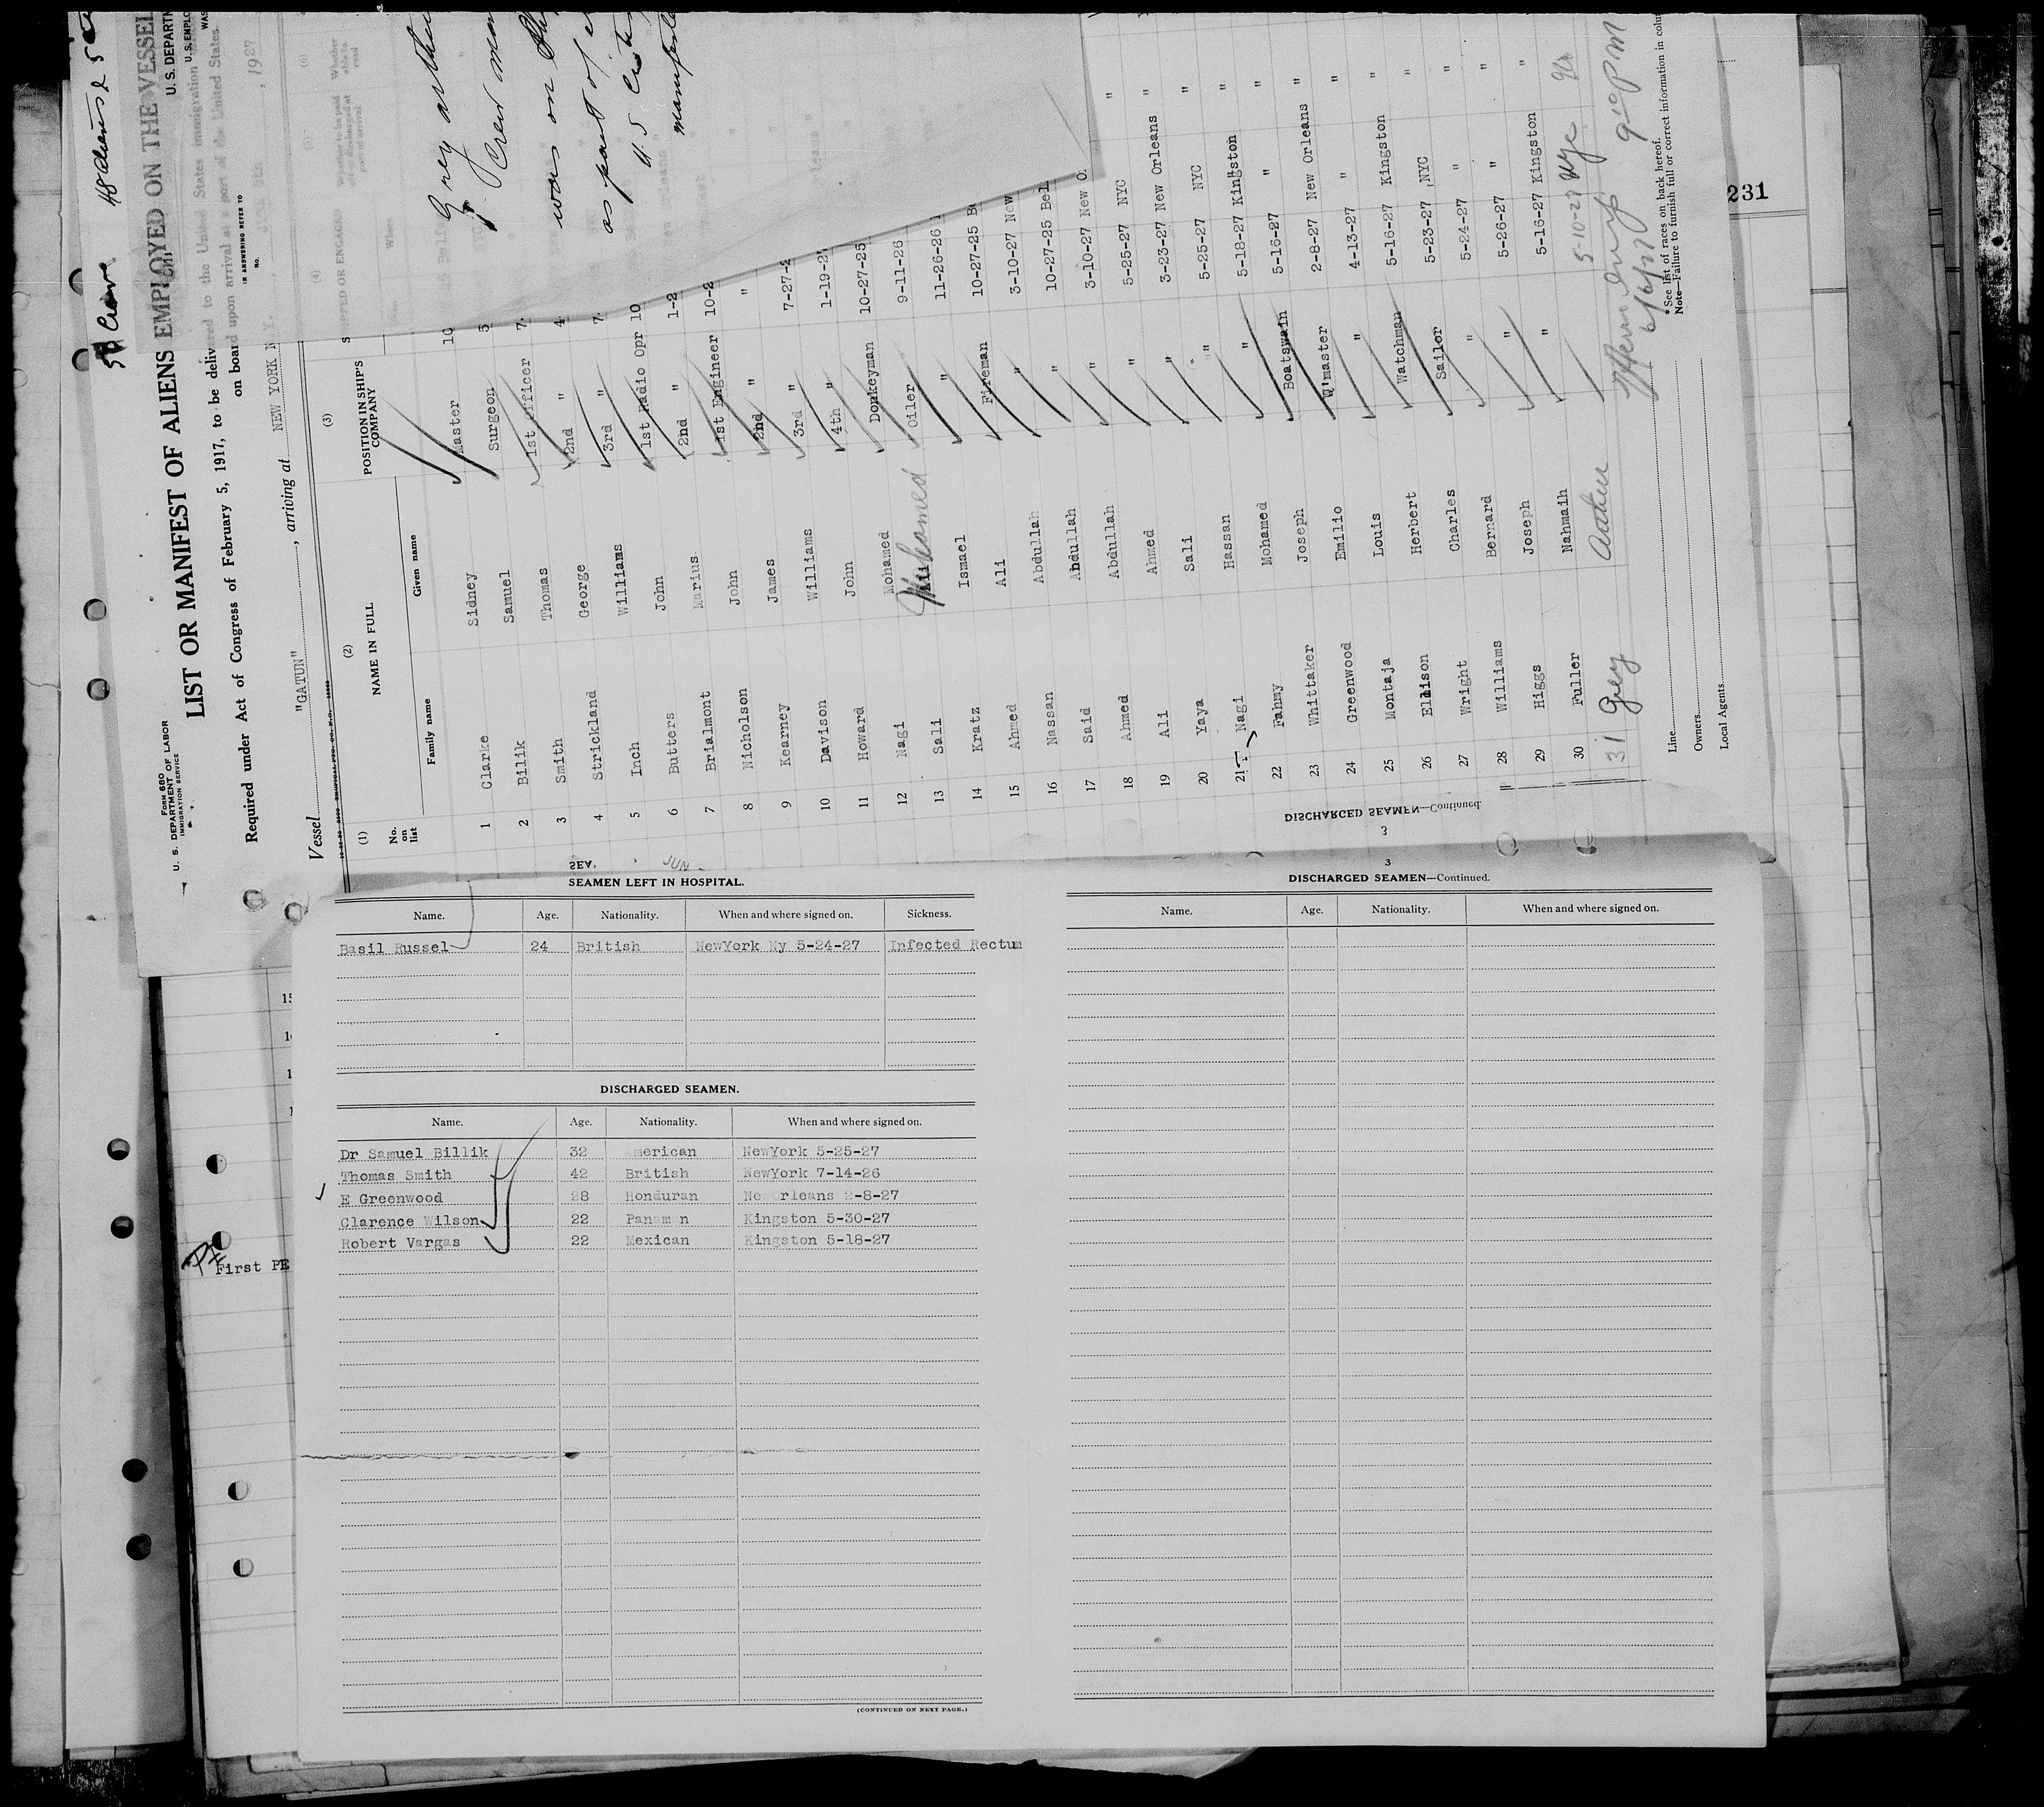 50 Crew
Form 680
U. S. DEPARTMENT OF LABOR
IMMIGRATION SERVICE
LIST OR MANIFEST OF ALIENS EMPLOYED ON THE VESSEL
Required under Act of Congress of February 5, 1917, to be delivered to the United States immigration
on board upon arrival at a port of the United States.
U. S. DEPARTM
U. S. EMPL
WAS
IN ANSWERING REFER TO
No.
Vessel "GATUN", arriving at NEW YORK N.Y., 1927
(1) (2) (3) (4) (5) (6)
No. on list NAME IN FULL POSITION IN SHIP'S COMPANY
Family name Given name
1 Clarke Sidney Master 10
2 Bilik Samuel Surgeon 5
3 Smith Thomas 1st Officer 7
4 Strickland George 2nd " 4
5 Inch Williams 3rd " 7
6 Butters John 1st Radio Opr 10
7 Brialmont Marius 2nd " 1-2
8 Nicholson John 1st Engineer 10-2
9 Kearney James 2nd " "
10 Davison Williams 3rd " 7-27-2
11 Howard John 4th " 1-19-2
12 Nagi Mohamed Donkeyman 10-27-25
13 Sali Mohamed Oiler 9-11-26
14 Kratz Ismael " 11-26-26
15 Ahmed Ali Fireman 10-27-25 Be
16 Nassan Abdullah " 3-10-27 New
17 Said Abdullah " 10-27-25 Bel
18 Ahmed Abdullah " 3-10-27 New O.
19 Ali Ahmed " 5-25-27 NYC "
20 Yaya Sali " 3-23-27 New Orleans "
21 Nagi Hassan " 5-25-27 NYC "
22 Fahmy Mohamed " 5-18-27 Kingston "
23 Whittaker Joseph Boatswain 5-16-27 " "
24 Greenwood Emilio Q'master 2-8-27 New Orleans "
25 Montaja Louis " 4-13-27 " "
26 Ellison Herbert Watchman 5-16-27 Kingston "
27 Wright Charles Sailor 5-23-27 NYC "
28 Williams Bernard " 5-24-27 " "
29 Higgs Joseph " 5-26-27 " "
30 Fuller Nahmaih " 5-16-27 Kingston "
31 Grey 5-10-27
6/6/27 9 10 PM
Line
Owners
Local Agents
* See list of races on back hereof.
Note—Failure to furnish full or correct information in colu
Grey
Crew man
was on
as part of
U. S.
231
First PE
DISCHARGED SEAMEN—Continued.
3
SEAMEN LEFT IN HOSPITAL.
Name. Age. Nationality. When and where signed on. Sickness.
Basil Russel 24 British NewYork Ny 5-24-27 Infected Rectum
DISCHARGED SEAMEN.
Name. Age. Nationality. When and where signed on.
Dr Samuel Billik 32 American NewYork 5-25-27
Thomas Smith 42 British NewYork 7-14-26
E Greenwood 28 Honduran Ne Orleans 2-8-27
Clarence Wilson 22 Panaman Kingston 5-30-27
Robert Vargas 22 Mexican Kingston 5-18-27
(CONTINUED ON NEXT PAGE.)
3
DISCHARGED SEAMEN—Continued.
Name. Age. Nationality. When and where signed on.